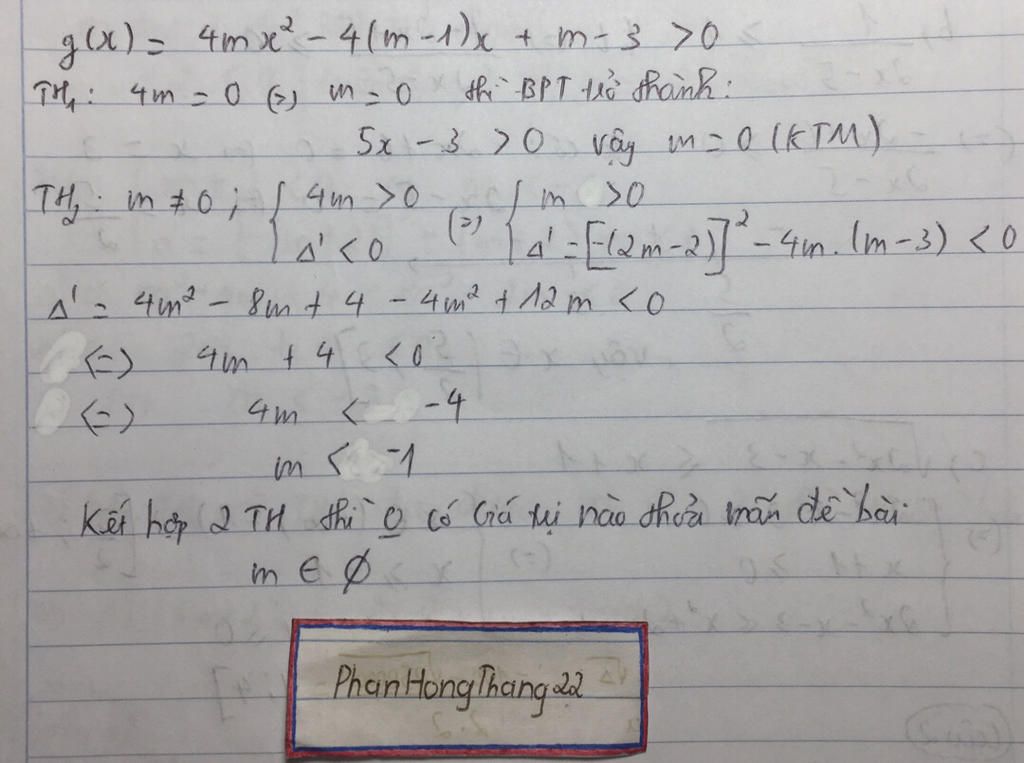 g(x) = 4mx² - 4(m-1)x + m - 3 > 0
TH₁: 4m = 0 (=) m = 0 thì BPT trở thành:
5x - 3 > 0 vậy m = 0 (KTM)
TH₂: m ≠ 0 ; { 4m > 0 (=) { m > 0
Δ' < 0 Δ' = [-(2m-2)]² - 4m.(m-3) < 0
Δ' = 4m² - 8m + 4 - 4m² + 12m < 0
(=) 4m + 4 < 0
(=) 4m < -4
m < -1
Kết hợp 2 TH thì 0 có giá trị nào thỏa mãn đề bài.
m ∈ ∅
PhanHongThang22